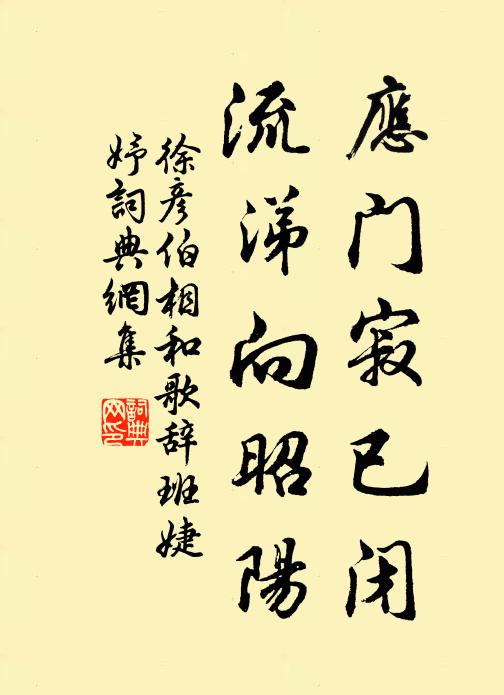 應門寂已闭
流涕向昭陽
徐彦伯相和歌辞班婕
妤詞典網集
詞典
网印